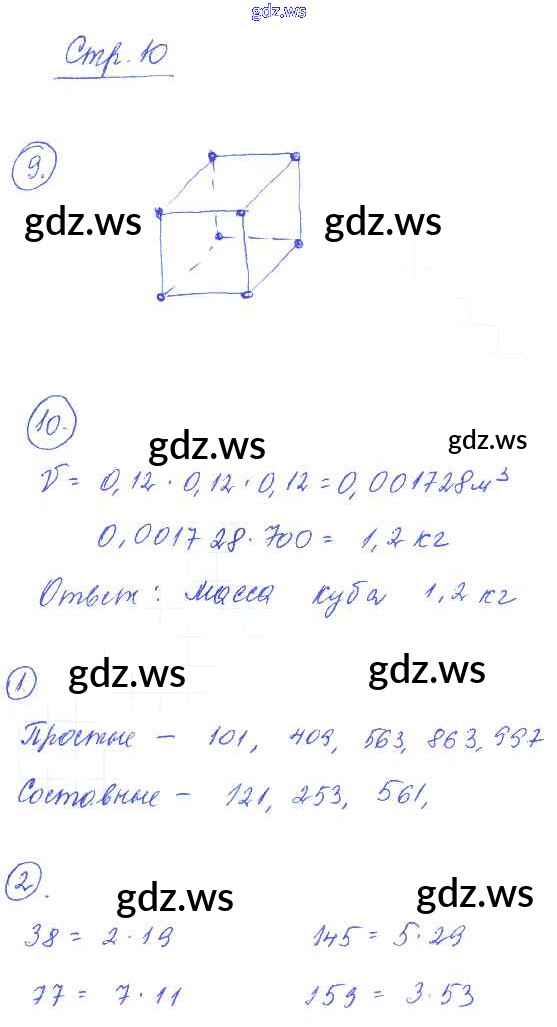 gdz.ws
Стр. 10
9.
gdz.ws gdz.ws
10.
gdz.ws gdz.ws
V = 0,12 · 0,12 · 0,12 = 0,001728 м³
0,001728 · 700 = 1,2 кг
Ответ: масса куба 1,2 кг
1.
gdz.ws gdz.ws
Простые — 101, 409, 563, 863, 997
Составные — 121, 253, 561,
2.
gdz.ws gdz.ws
38 = 2 · 19 145 = 5 · 29
77 = 7 · 11 159 = 3 · 53